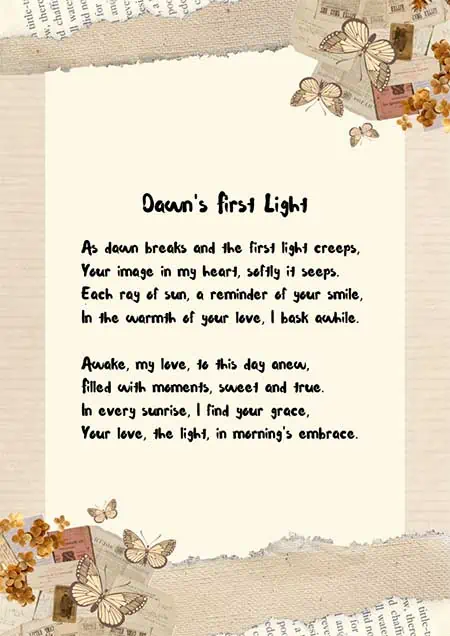 Dawn's first Light
As dawn breaks and the first light creeps,
Your image in my heart, softly it seeps.
Each ray of sun, a reminder of your smile,
In the warmth of your love, I bask awhile.
Awake, my love, to this day anew,
filled with moments, sweet and true.
In every sunrise, I find your grace,
Your love, the light, in morning's embrace.